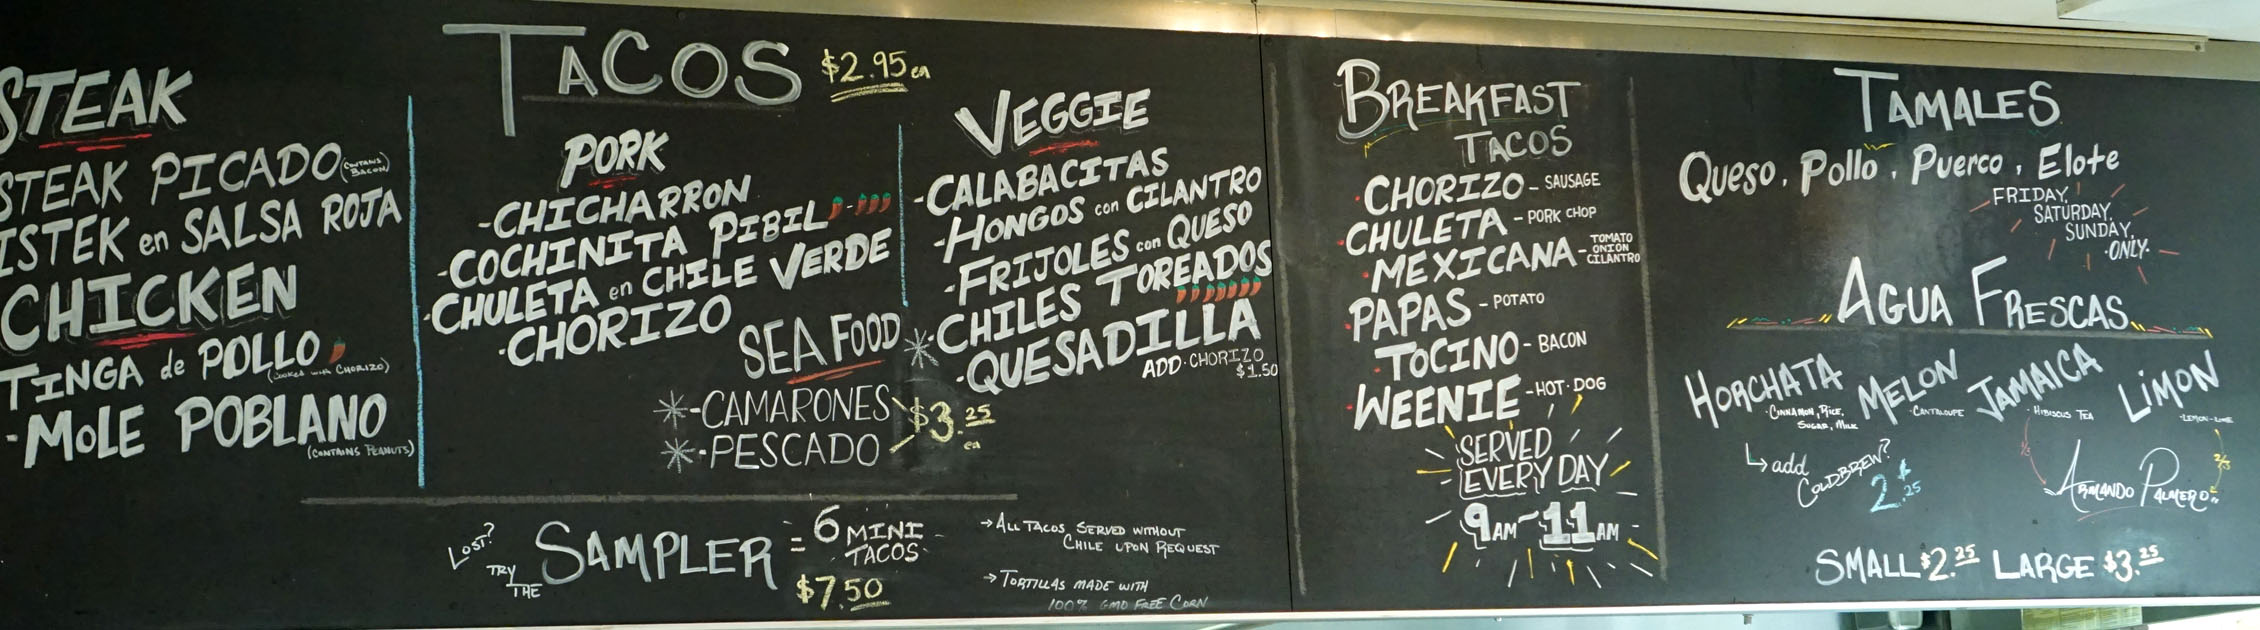 TACOS $2.95 ea
STEAK
STEAK PICADO (CONTAINS BACON)
ISTEK en SALSA ROJA
CHICKEN
TINGA de POLLO
(COOKED WITH CHORIZO)
-MOLE POBLANO
(CONTAINS PEANUTS)
PORK
-CHICHARRON
-COCHINITA PIBIL -
-CHULETA en CHILE VERDE
-CHORIZO
SEAFOOD
*-CAMARONES
*-PESCADO
$3.25 ea
VEGGIE
-CALABACITAS
-HONGOS con CILANTRO
-FRIJOLES con QUESO
*-CHILES TOREADOS
-QUESADILLA
ADD-CHORIZO
$1.50
LOST?
TRY THE
SAMPLER = 6 MINI TACOS
$7.50
→ALL TACOS SERVED WITHOUT
CHILE UPON REQUEST
→TORTILLAS MADE WITH
100% GMO FREE CORN
BREAKFAST
TACOS
·CHORIZO - SAUSAGE
·CHULETA - PORK CHOP
·MEXICANA - TOMATO ONION CILANTRO
·PAPAS - POTATO
·TOCINO - BACON
·WEENIE - HOT·DOG
SERVED
EVERY DAY
9AM-11AM
TAMALES
Queso, Pollo, Puerco, Elote
FRIDAY,
SATURDAY,
SUNDAY,
·ONLY·
AGUA FRESCAS
HORCHATA MELON JAMAICA LIMON
·CINNAMON, RICE, ·CANTALOUPE ·HIBISCUS TEA ·LEMON-LIME
SUGAR, MILK
↳add
COLDBREW?
2$.25
1/3 2/3
ARMANDO PALMERO
SMALL $2.25 LARGE $3.25